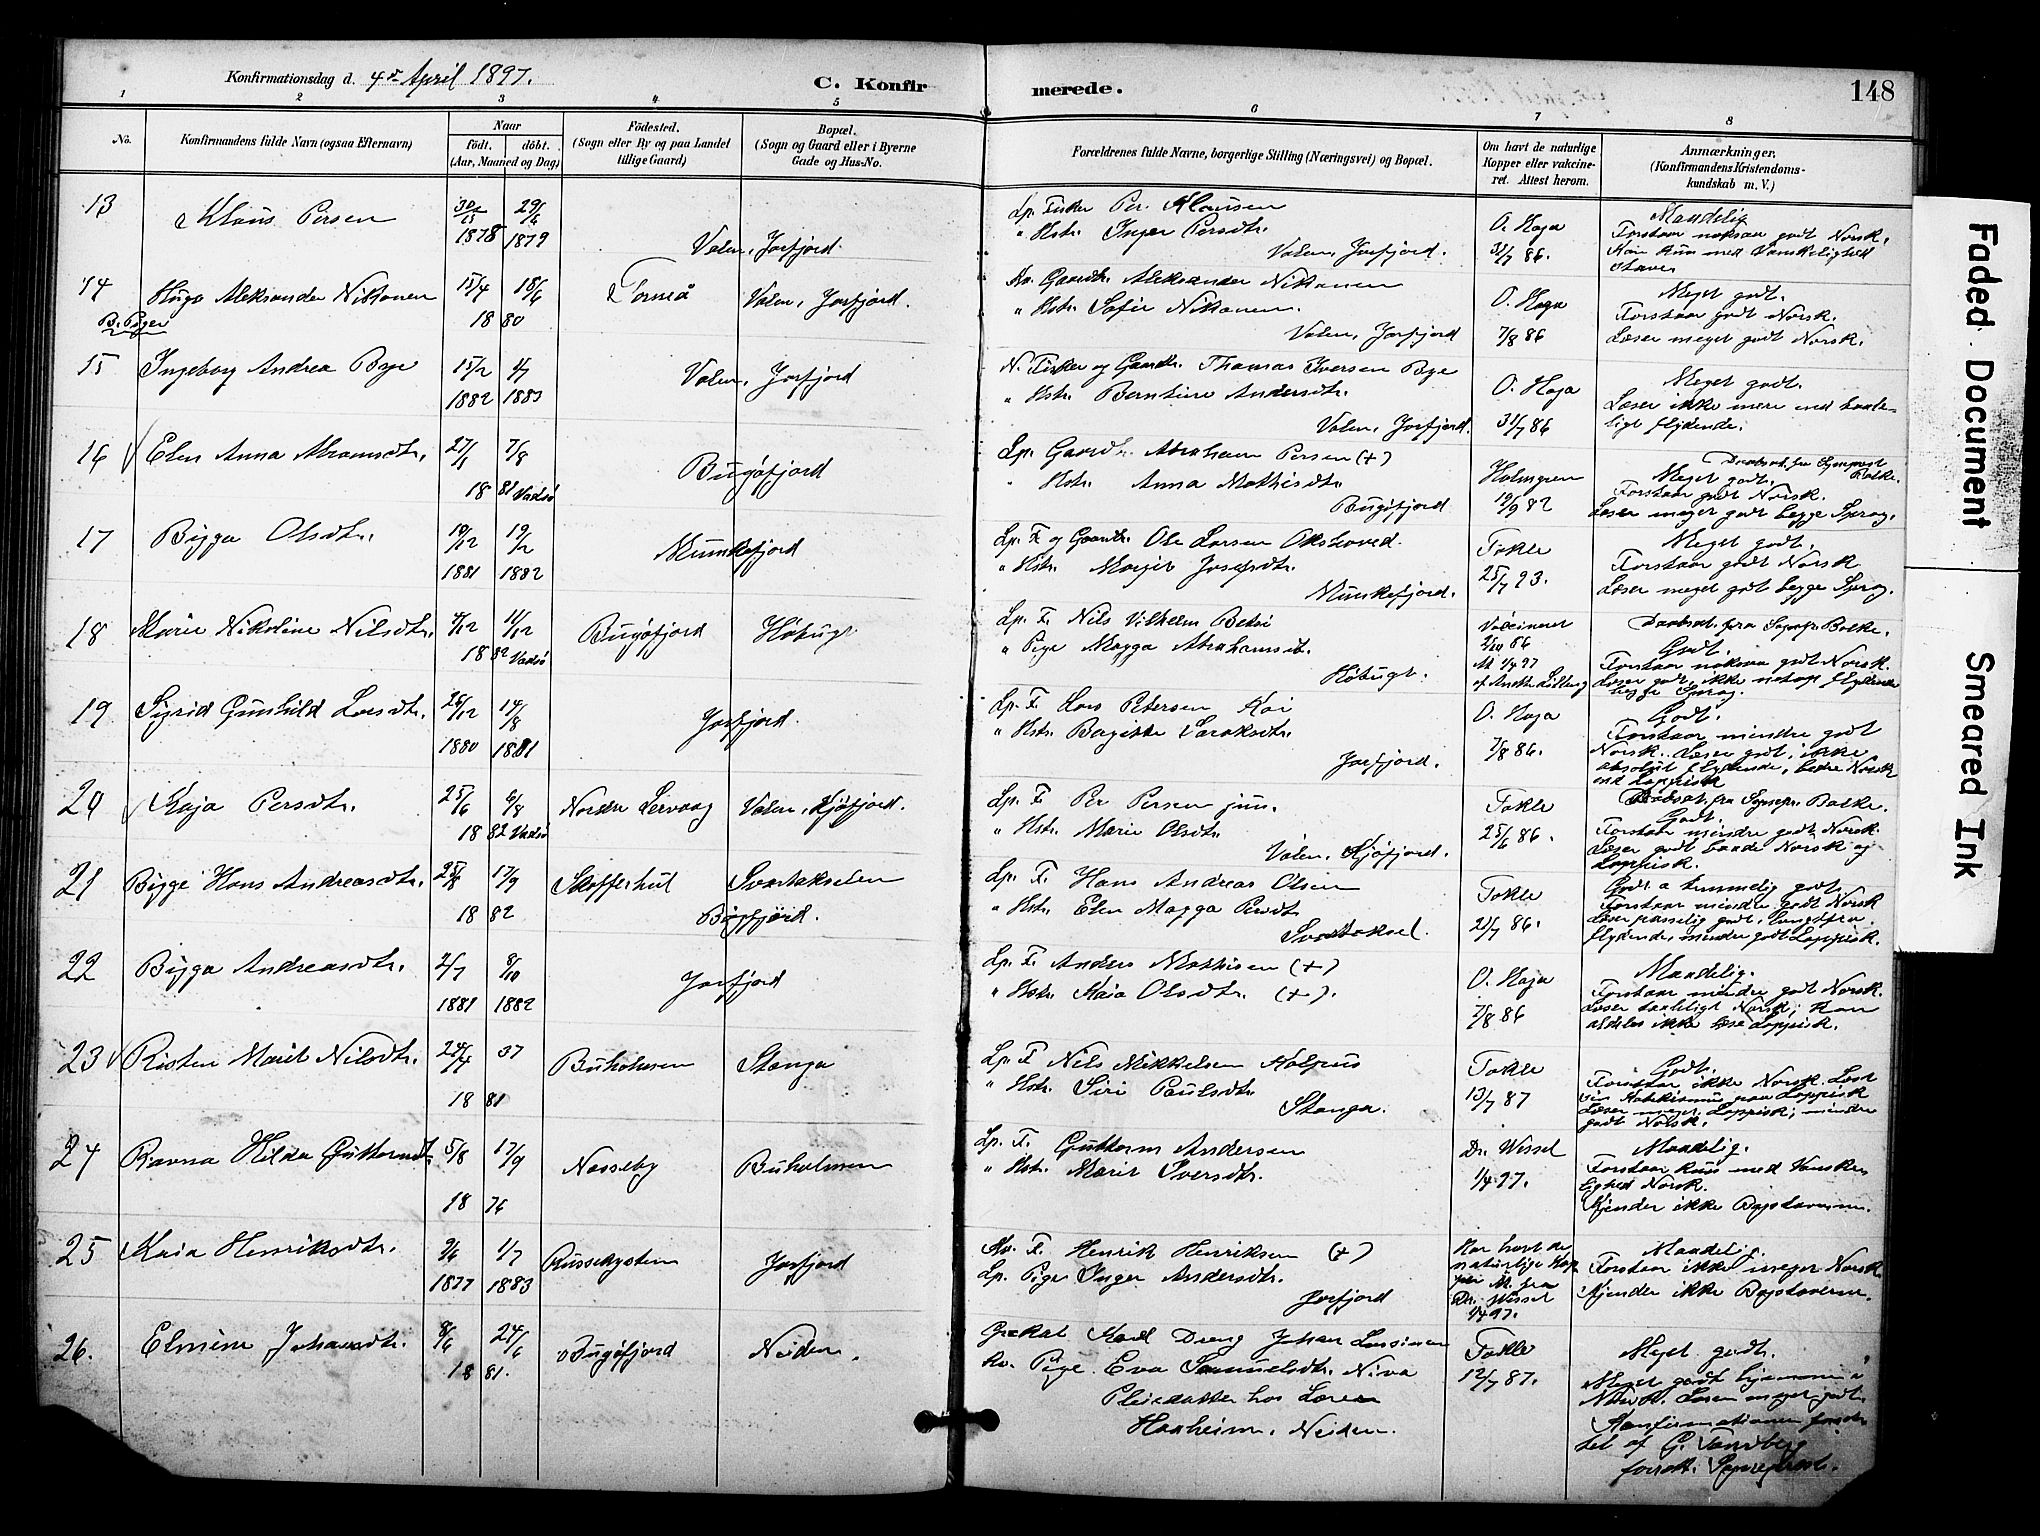 Konfirmationsdag d. 4de April 1897.
C. Konfirmerede.
148
1 2 3 4 5 6 7 8
No.
Konfirmandens fulde Navn (ogsaa Efternavn)
Naar
født. døbt.
(Aar, Maaned og Dag)
Fødested.
(Sogn eller By og paa Landet
tillige Gaard)
Bopæl.
(Sogn og Gaard eller i Byerne
Gade og Hus-No.
Forældrenes fulde Navne, borgerlige Stilling (Næringsvei) og Bopæl.
Om havt de naturlige
Kopper eller vakcine-
ret. Attest herom.
Anmærkninger.
(Konfirmandens Kristendoms-
kundskab m. V.)
13 Klaus Persen
1878 1879
Valen, Jarfjord.
Lp. Fisker Per Klausen
" Hstr. Inger Persdtr.
Valen, Jarfjord.
O. Haga
31/7 86.
Maadelig
Forstaar noksaa godt Norsk.
Kan kun med Vanskelighed
stave.
14 Hugo Aleksander Niskanen
15/4 18/6
18 80
Torneå
Valen, Jarfjord.
Kv. Gaardbr. Aleksander Niskanen
" Hstr. Sofie Niskanen.
Valen, Jarfjord
O. Haga
7/8 86
Meget godt.
Forstaar godt Norsk.
Læser meget godt Norsk.
B. Piger
15 Ingeborg Andrea Bye
15/12 1/7
1882 1883
Valen, Jarfjord
N. Fisker og Gaardbr. Thomas Iversen Bye
" Hstr. Berntine Andersdtr.
Valen, Jarfjord.
O. Haga
31/7 86
Meget godt.
Læser ikke mere end taale-
ligt flydende.
16 Elen Anna Abramsdtr.
27/1 7/8
18 81 Vadsø
Bugøfjord
Lp. Gaardbr. Abraham Persen (+)
" Hstr. Anna Mathisdtr.
Bugøfjord
Holmgren
19/9 82
Daabsat. fra Sognepræst Balke.
Meget godt.
Forstaar godt Norsk.
Læser meget godt begge Sprog.
17 Bigga Olsdtr.
19/12 19/2
1881 1882
Munkefjord
Lp. F. og Gaardbr. Ole Larsen Okshoved.
" Hstr. Marjit Josefsdtr.
Munkefjord.
Takle
25/7 93.
Meget godt.
Forstaar godt Norsk
Læser meget godt begge Sprog.
18 Marie Nikoline Nilsdtr.
4/12 11/12
18 82 Vadsø
Bugøfjord
Høbugt
Lp. F. Nils Vilhelm Betsi
" Pige Magga Abrahamsdt.
Høbugt.
Vakcineret
At. 1/4 97
Daabsat. fra Sognepr. Balke.
Godt.
Forstaar noksaa godt Norsk.
Læser godt, ikke netop flydende
begge Sprog.
19 Sigrid Gunhild Larsdtr.
26/12 14/8
1880 1881
Jarfjord.
Lp. F. Lars Petersen Kai
" Hstr. Bagitte Saraksdtr.
Jarfjord.
O. Haga
7/8 86.
Godt.
Forstaar mindre godt
Norsk. Læser godt, ikke
absolut flydende, bedre Norsk
end Lappisk
20 Kaja Persdtr.
25/6 6/8
18 82 Vadsø
Nordre Lervaag
Valen, Kjøfjord.
Lp. F. Per Persen jun.
" Hstr. Marie Olsdtr.
Valen, Kjøfjord.
Takle
25/6 86.
Daabsat. fra Sognepr. Balke.
Godt.
Forstaar mindre godt Norsk.
Læser godt baade Norsk og
Lappisk.
21 Bigge Hans Andreasdtr.
25/8 17/9
18 82
Skofferhul
Svartakselen
Bøgfjord.
Lp. F. Hans Andreas Olsen
" Hstr. Elen Magga Persdtr
Svartaksel.
Takle
21/7 86.
Godt a temmelig godt.
Forstaar mindre godt Norsk
Læser passelig godt, langtfra
flydende, mindre godt Lappisk.
22 Bigga Andreasdtr.
2/7 8/10
1881 1882
Jarfjord
Lp. F. Anders Mathisen (+)
" Hstr. Kaia Olsdtr. (+).
O. Haga
7/8 86
Maadelig.
Forstaar mindre godt Norsk.
Læser taaleligt Norsk, kan
aldeles ikke læse Lappisk.
23 Risten Marit Nilsdtr.
18 81
Buholmen
Stanga
Lp. F. Nils Mikkelsen
" Hstr. Siri Paulsdtr.
Stanga.
Takle
13/7 87
Godt.
Forstaar ikke Norsk. Læst
sin Katekismus paa Lappisk
Læser meget Lappisk, mindre
godt Norsk.
24 Ravna Hilda Guttormsdt.
5/8 17/9
18 76
Nesseby
Buholmen
Lp. F. Guttorm Andersen
" Hstr. Marit Iversdtr.
Dr. Wessel
1/4 97.
Maadelig.
Forstaar kun med Vanske-
lighed Norsk.
Kjender ikke Bogstaverne.
25 Kaia Henriksdtr.
9/6 1/7
1877 1883
Russekysten
Jarfjord
Kv. F. Henrik Henriksen (+)
Lp. Pige Inger Andersdtr.
Jarfjord
Har havt de
naturlige Kop-
per At. fra
Dr. Wessel
1/4 97.
Maadelig.
Forstaar ikke meget Norsk
Kjender ikke Bogstaverne.
26. Elmine Johansdtr.
8/6 24/6
18 81.
Bugøfjord
Neiden.
Gr-Kat. Dreng Johan
Kv. Pige Eva Samuelsdtr. Niva
Pleiedatter hos Lærer
Haaheim, Neiden.
Takle
12/7 87.
Meget godt.
Meget godt hjemme i
Norsk. Læser meget godt.
Konfirmationen forret-
tet af G. Tandberg
forrett. Sogneprest.
Faded Document
Smeared Ink